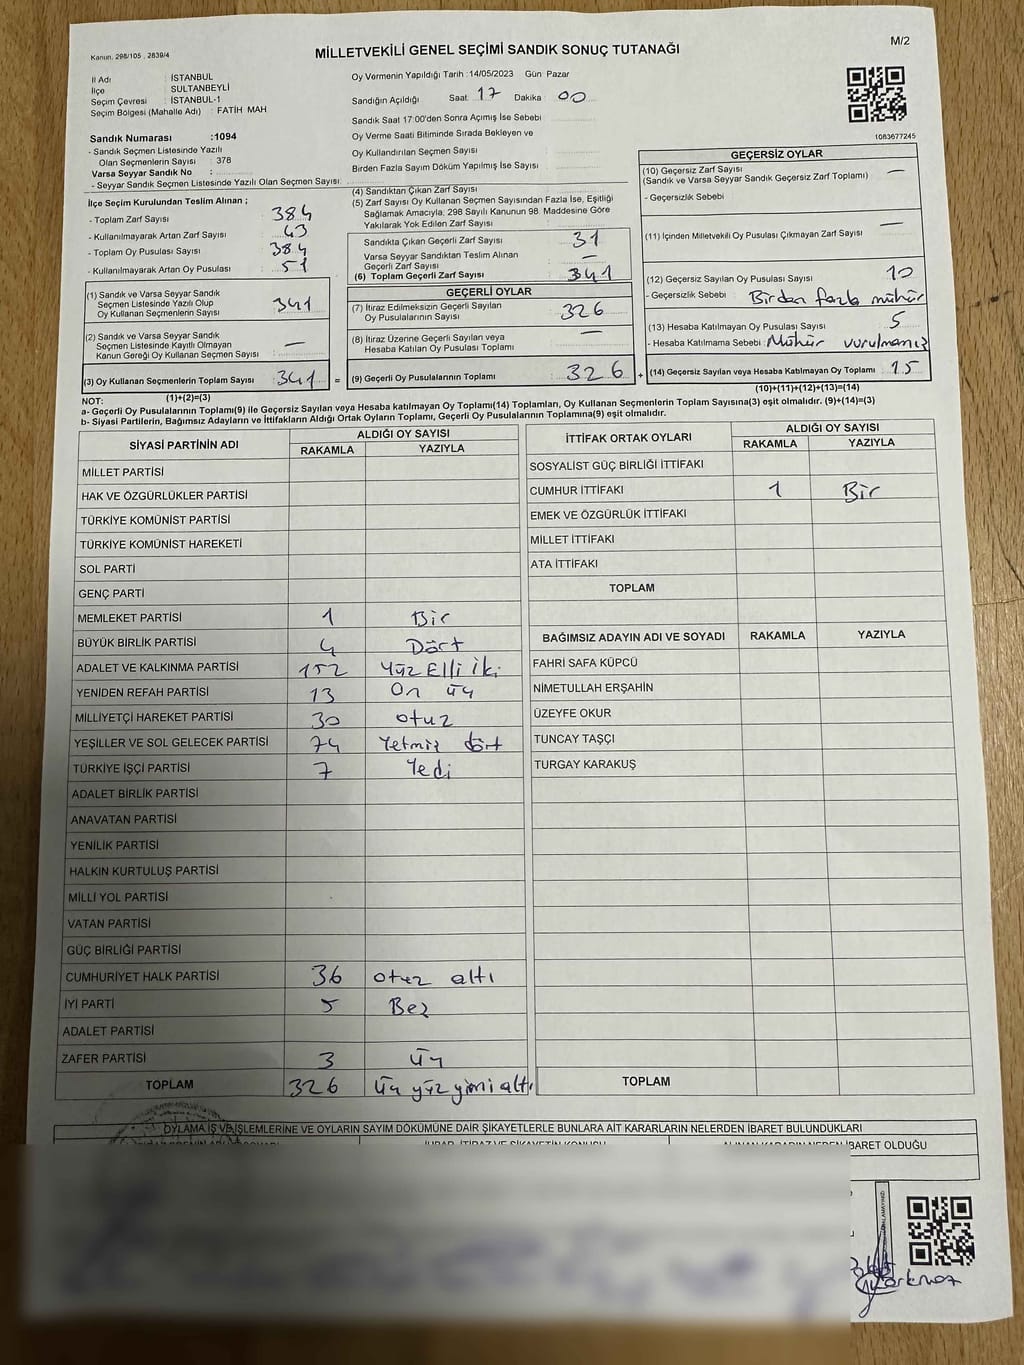 Kanun, 298/105 , 2839/4
MİLLETVEKİLİ GENEL SEÇİMİ SANDIK SONUÇ TUTANAĞI
M/2
İl Adı : İSTANBUL
İlçe : SULTANBEYLİ
Seçim Çevresi : İSTANBUL-1
Seçim Bölgesi (Mahalle Adı) : FATİH MAH
Sandık Numarası :1094
- Sandık Seçmen Listesinde Yazılı
Olan Seçmenlerin Sayısı : 378
Varsa Seyyar Sandık No :
- Seyyar Sandık Seçmen Listesinde Yazılı Olan Seçmen Sayısı:
Oy Vermenin Yapıldığı Tarih :14/05/2023 Gün Pazar
Sandığın Açıldığı Saat 17 Dakika 00
Sandık Saat 17:00'den Sonra Açımış İse Sebebi
Oy Verme Saati Bitiminde Sırada Bekleyen ve
Oy Kullandırılan Seçmen Sayısı
Birden Fazla Sayım Döküm Yapılmış İse Sayısı
1083677245
İlçe Seçim Kurulundan Teslim Alınan ;
- Toplam Zarf Sayısı 384
- Kullanılmayarak Artan Zarf Sayısı 43
- Toplam Oy Pusulası Sayısı 384
- Kullanılmayarak Artan Oy Pusulası 51
(1) Sandık ve Varsa Seyyar Sandık
Seçmen Listesinde Yazılı Olup
Oy Kullanan Seçmenlerin Sayısı 341
(2) Sandık ve Varsa Seyyar Sandık
Seçmen Listesinde Kayıtlı Olmayan
Kanun Gereği Oy Kullanan Seçmen Sayısı : —
(3) Oy Kullanan Seçmenlerin Toplam Sayısı 341 =
(1)+(2)=(3)
(4) Sandıktan Çıkan Zarf Sayısı
(5) Zarf Sayısı Oy Kullanan Seçmen Sayısından Fazla İse, Eşitliği
Sağlamak Amacıyla, 298 Sayılı Kanunun 98. Maddesine Göre
Yakılarak Yok Edilen Zarf Sayısı
Sandıkta Çıkan Geçerli Zarf Sayısı 31
Varsa Seyyar Sandıktan Teslim Alınan
Geçerli Zarf Sayısı —
(6) Toplam Geçerli Zarf Sayısı 341
GEÇERLİ OYLAR
(7) İtiraz Edilmeksizin Geçerli Sayılan
Oy Pusulalarının Sayısı 326
(8) İtiraz Üzerine Geçerli Sayılan veya
Hesaba Katılan Oy Pusulası Toplamı —
(9) Geçerli Oy Pusulalarının Toplamı 326 +
GEÇERSİZ OYLAR
(10) Geçersiz Zarf Sayısı —
(Sandık ve Varsa Seyyar Sandık Geçersiz Zarf Toplamı)
- Geçersizlik Sebebi
(11) İçinden Milletvekili Oy Pusulası Çıkmayan Zarf Sayısı —
(12) Geçersiz Sayılan Oy Pusulası Sayısı 10
- Geçersizlik Sebebi : Birden fazla mühür
(13) Hesaba Katılmayan Oy Pusulası Sayısı 5
- Hesaba Katılmama Sebebi : Mühür vurulmamış
(14) Geçersiz Sayılan veya Hesaba Katılmayan Oy Toplamı 15
(10)+(11)+(12)+(13)=(14)
NOT:
a- Geçerli Oy Pusulalarının Toplamı(9) ile Geçersiz Sayılan veya Hesaba katılmayan Oy Toplamı(14) Toplamları, Oy Kullanan Seçmenlerin Toplam Sayısına(3) eşit olmalıdır. (9)+(14)=(3)
b- Siyasi Partilerin, Bağımsız Adayların ve İttifakların Aldığı Ortak Oyların Toplamı, Geçerli Oy Pusulalarının Toplamına(9) eşit olmalıdır.
SİYASİ PARTİNİN ADI ALDIĞI OY SAYISI
RAKAMLA YAZIYLA
MİLLET PARTİSİ
HAK VE ÖZGÜRLÜKLER PARTİSİ
TÜRKİYE KOMÜNİST PARTİSİ
TÜRKİYE KOMÜNİST HAREKETİ
SOL PARTİ
GENÇ PARTİ
MEMLEKET PARTİSİ 1 Bir
BÜYÜK BİRLİK PARTİSİ 4 Dört
ADALET VE KALKINMA PARTİSİ 152 Yüz Elli İki
YENİDEN REFAH PARTİSİ 13 On üç
MİLLİYETÇİ HAREKET PARTİSİ 30 otuz
YEŞİLLER VE SOL GELECEK PARTİSİ 74 Yetmiş dört
TÜRKİYE İŞÇİ PARTİSİ 7 Yedi
ADALET BİRLİK PARTİSİ
ANAVATAN PARTİSİ
YENİLİK PARTİSİ
HALKIN KURTULUŞ PARTİSİ
MİLLİ YOL PARTİSİ
VATAN PARTİSİ
GÜÇ BİRLİĞİ PARTİSİ
CUMHURİYET HALK PARTİSİ 36 otuz altı
İYİ PARTİ 5 Beş
ADALET PARTİSİ
ZAFER PARTİSİ 3 üç
TOPLAM 326 üç yüz yirmi altı
İTTİFAK ORTAK OYLARI ALDIĞI OY SAYISI
RAKAMLA YAZIYLA
SOSYALİST GÜÇ BİRLİĞİ İTTİFAKI
CUMHUR İTTİFAKI 1 Bir
EMEK VE ÖZGÜRLÜK İTTİFAKI
MİLLET İTTİFAKI
ATA İTTİFAKI
TOPLAM
BAĞIMSIZ ADAYIN ADI VE SOYADI RAKAMLA YAZIYLA
FAHRİ SAFA KÜPCÜ
NİMETULLAH ERŞAHİN
ÜZEYFE OKUR
TUNCAY TAŞÇI
TURGAY KARAKUŞ
TOPLAM
OYLAMA İŞ VE İŞLEMLERİNE VE OYLARIN SAYIM DÖKÜMÜNE DAİR ŞİKAYETLERLE BUNLARA AİT KARARLARIN NELERDEN İBARET BULUNDUKLARI
İHBAR, İTİRAZ VE ŞİKAYETİN KONUSU
ALINAN KARARIN NEDEN İBARET OLDUĞU